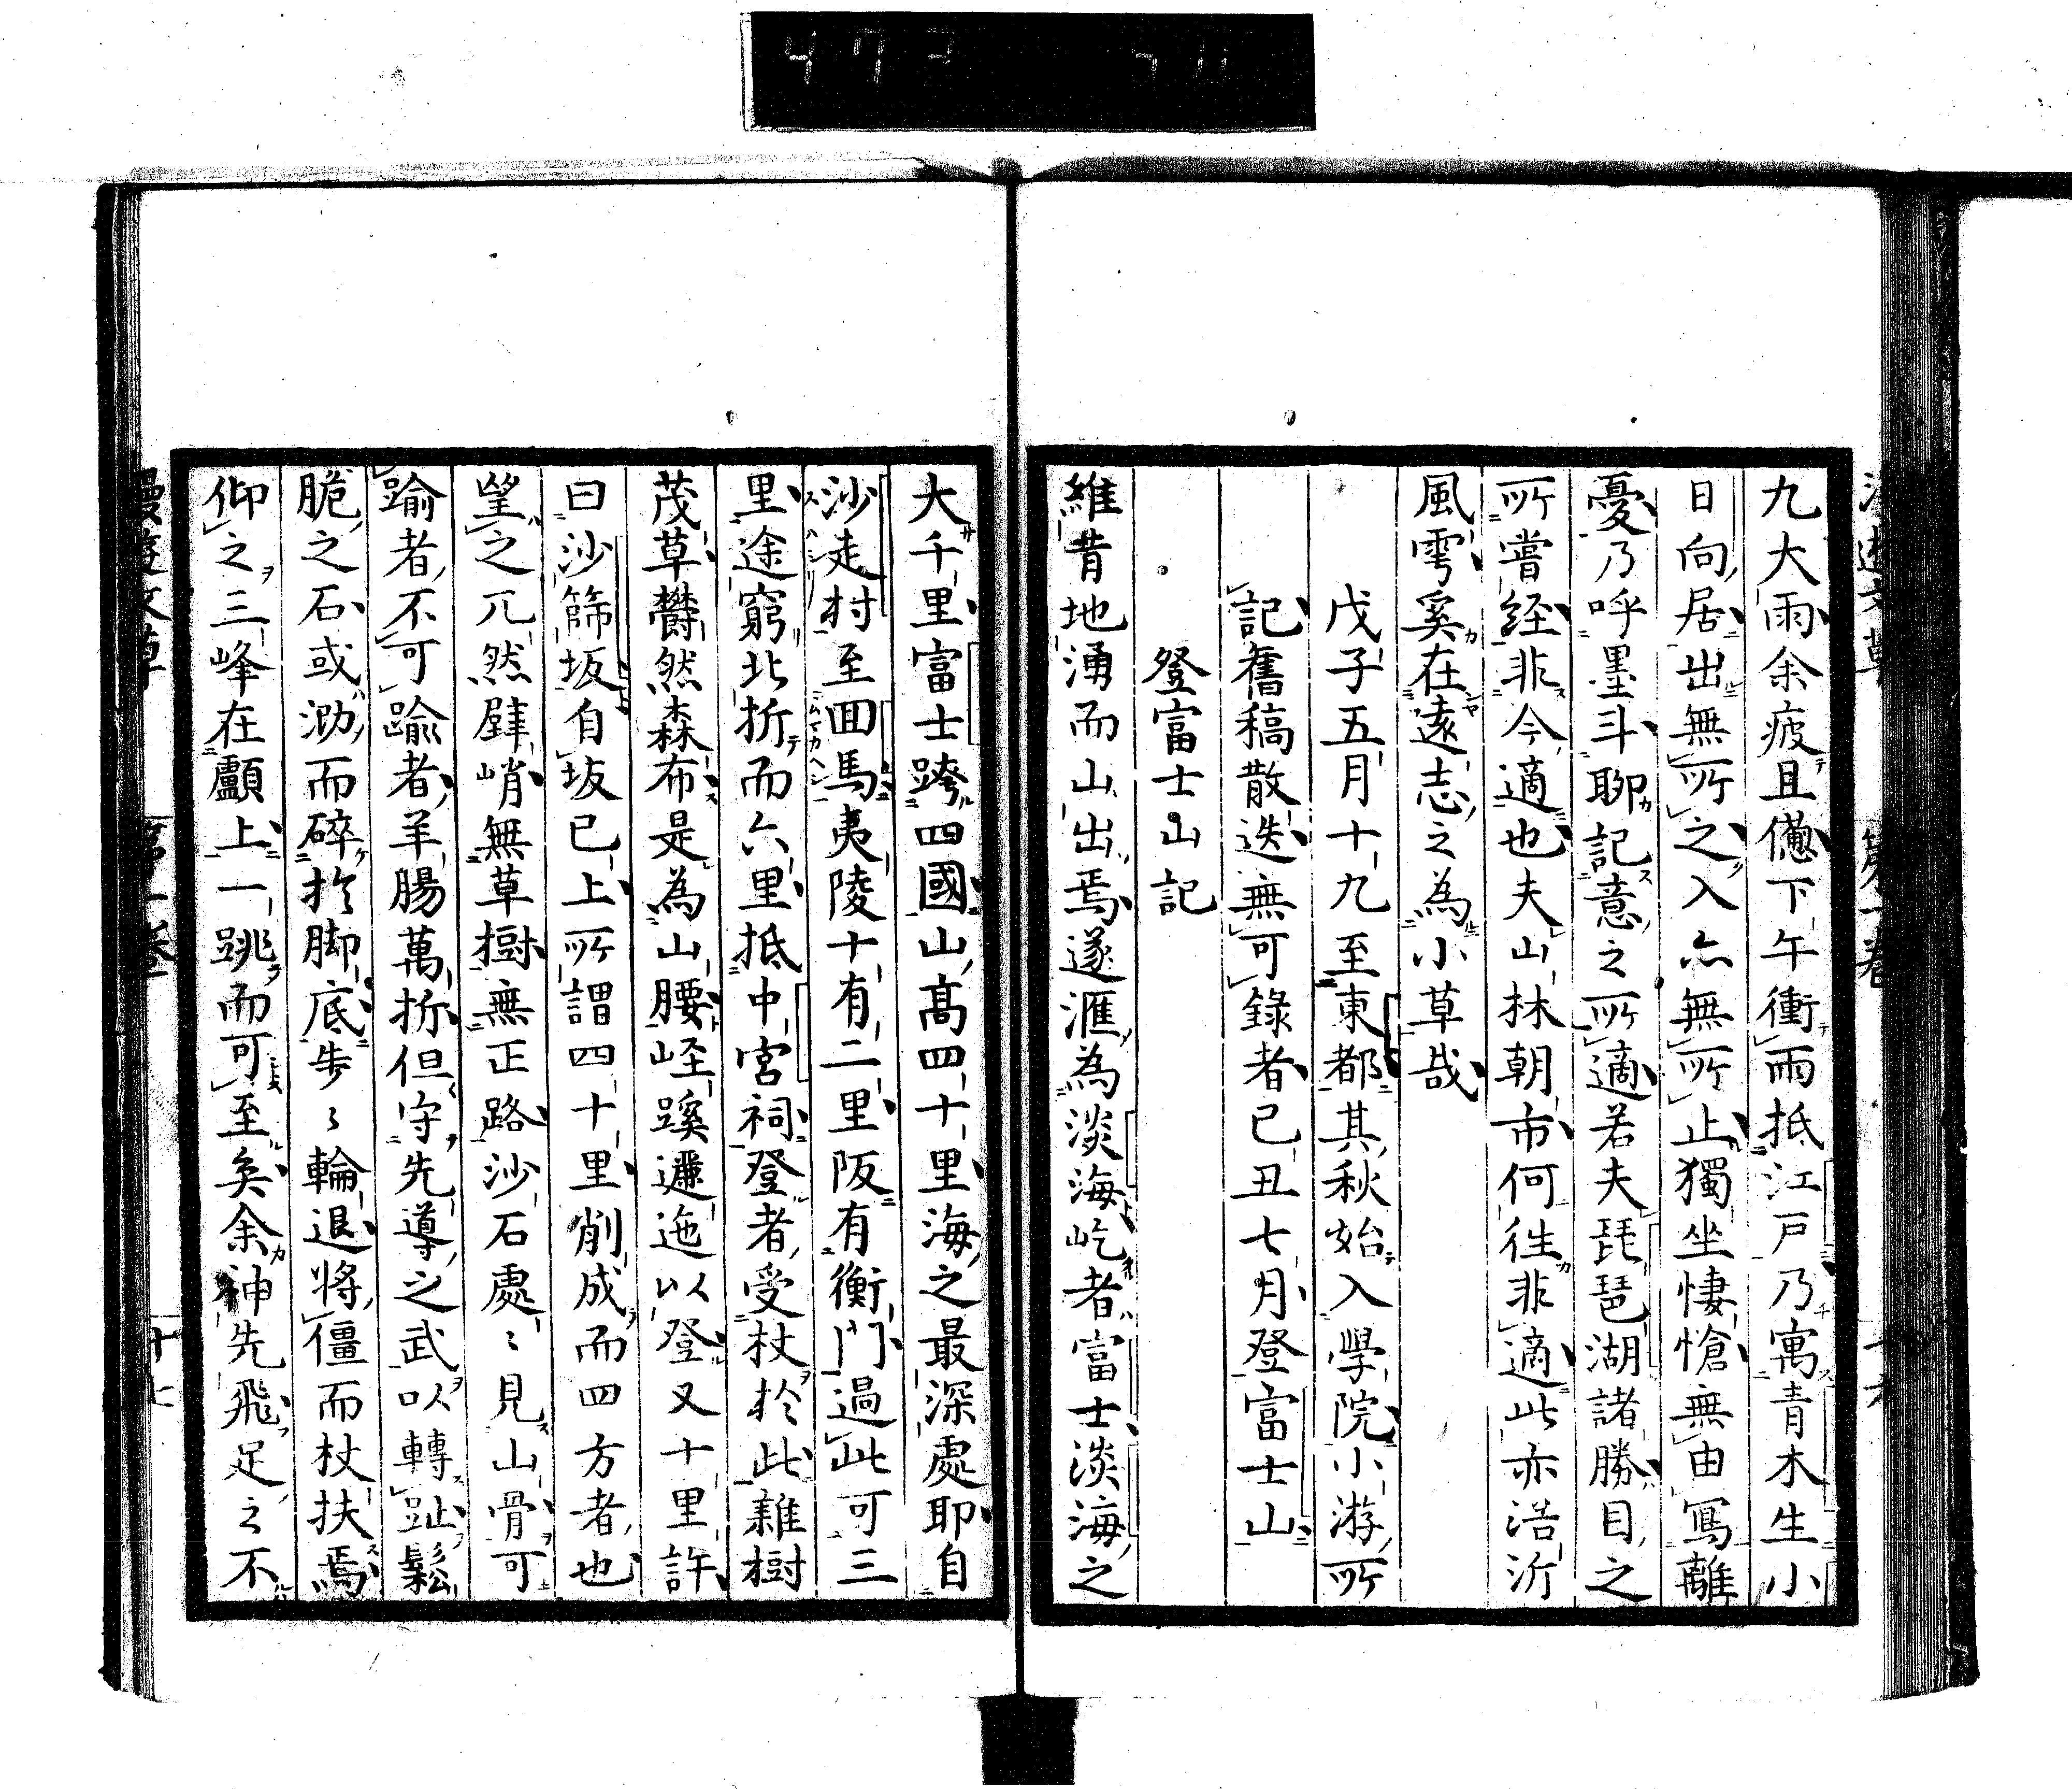 九大雨余疲且憊下午衝雨抵江戸乃寓青木生小
日向居出無所之入亦無所止獨坐悽愴無由寫離
憂乃呼墨斗聊記意之所適若夫琵琶湖諸勝目之
所嘗経非今適也夫山林朝市何徃非適此亦浩沂
風雩奚在遠志之為小草哉
戊子五月十九至東都其秋始入學院小游所
記舊稿散迭無可錄者已丑七月登富士山
登富士山記
維昔地湧而山出焉遂滙為淡海屹者富士淡海之
大千里富士跨四國山高四十里海之最深處耶自
沙走村至回馬夷陵十有二里阪有衡門過此可三
里途窮北折而六里抵中宮祠登者受杖於此雜樹
茂草欝然森布是為山腰峌蹊邐迤以登又十里許
曰沙篩坂自坂已上所謂四十里削成而四方者也
望之兀然肆峭無草樹無正路沙石處〻見山骨可
踰者不可踰者羊腸萬折但守先導之武以轉趾鬆
脆之石或泐而碎於脚底步〻輪退將僵而杖扶焉
仰之三峰在顱上一跳而可至矣余神先飛足之不
漫遊文草 第一巻